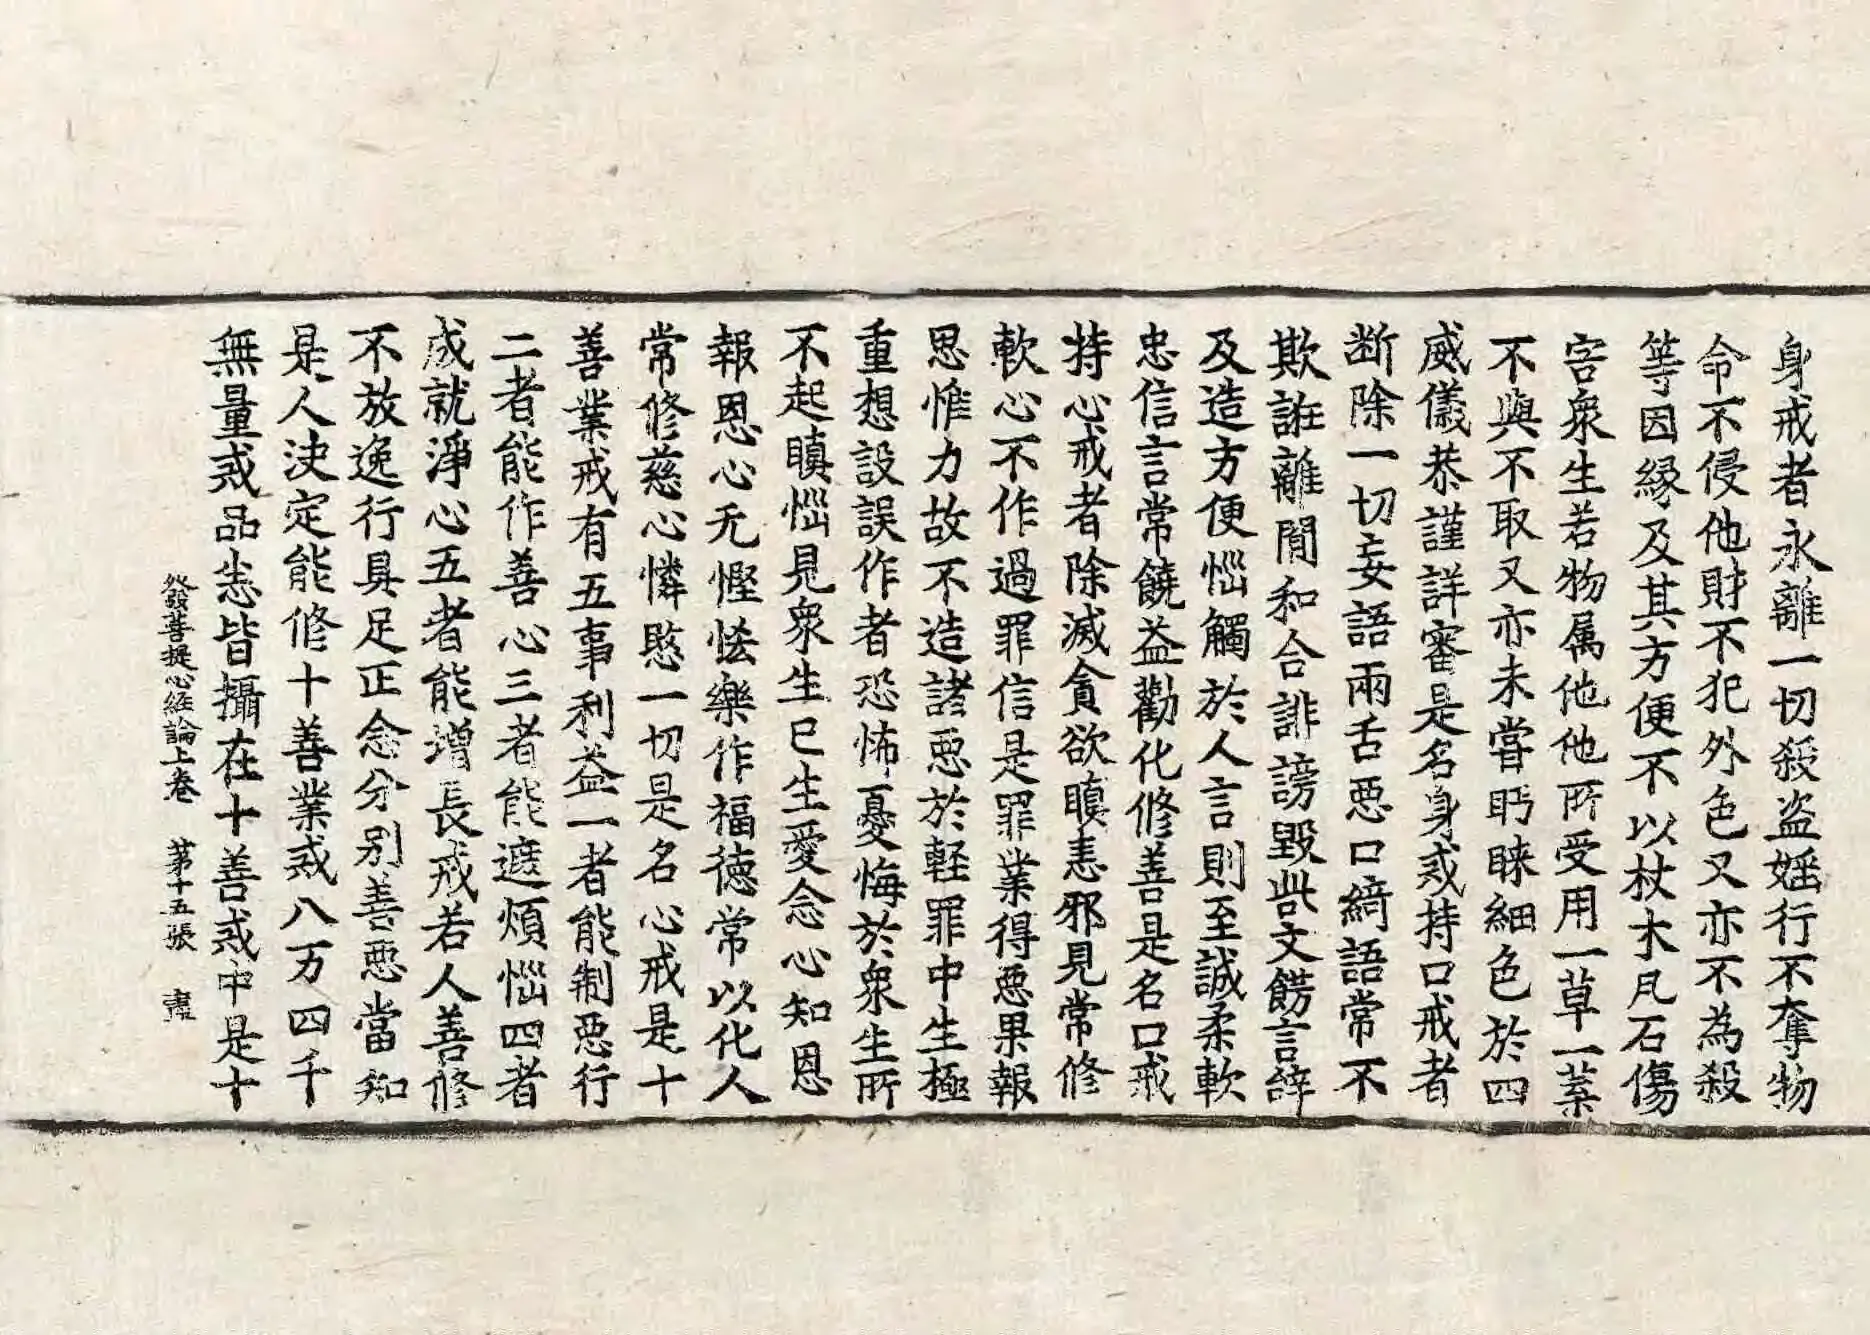 身戒者永離一切殺盗婬行不奪物
命不侵他財不犯外色又亦不為殺
等因縁及其方便不以杖木凡石傷
害衆生若物属他他所受用一草一葉
不與不取又亦未嘗眄睞細色於四
威儀恭謹詳審是名身戒持口戒者
断除一切妄語兩舌惡口綺語常不
欺誑離間和合誹謗毀呰文餝言辝
及造方便惱觸於人言則至誠柔軟
忠信言常饒益勸化修善是名口戒
持心戒者除滅貪欲瞋恚邪見常修
軟心不作過罪信是罪業得惡果報
思惟力故不造諸惡於軽罪中生極
重想設誤作者恐怖憂悔於衆生所
不起瞋惱見衆生已生愛念心知恩
報恩心无慳悋樂作福德常以化人
常修慈心憐愍一切是名心戒是十
善業戒有五事利益一者能制惡行
二者能作善心三者能遮煩惱四者
成就淨心五者能增長戒若人善修
不放逸行具足正念分別善惡當知
是人決定能修十善業戒八万四千
無量戒品悉皆攝在十善戒中是十
發菩提心経論上卷　第十五張